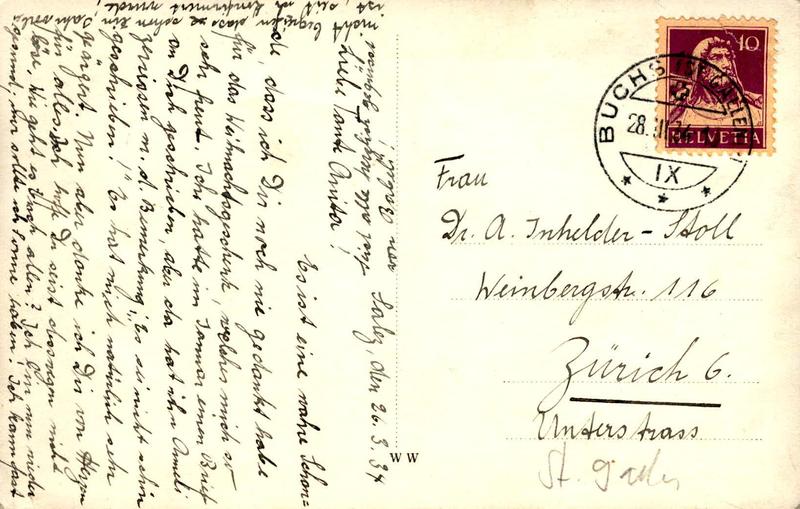 Salez, den 26.3.34
Liebe Tante
Es ist eine wahre Schan-
de, dass ich Dir noch nie gedankt habe
für das Weihnachtsgeschenk, welches mich so
sehr freut. Ich hatte im Januar einen Brief
an Dich geschrieben, aber da hat ihn Anneli
zerrissen m. d. Bemerkung, „Es sei nicht schön
geschrieben!" Es hat mich natürlich sehr
geärgert. Nun aber danke ich Dir von Herzen
für alles. Ich hoffe Du seist deswegen nicht
böse. Wie geht es Euch allen? Ich bin nun wieder
gesund, nur sollte ich Sonne haben! Ich kann fast
nicht begreifen, dass es schon ein Jahr
ist, seit ich konfirmiert wurde.
Seid alle herzlich gegrüsst
von
WW
10
HELVETIA
BUCHS (ST. GALLEN)
28.III.34
IX
Frau
Dr. A. Inhelder-Stoll
Weinbergstr. 116
Zürich 6.
Unterstrass
St. Gallen